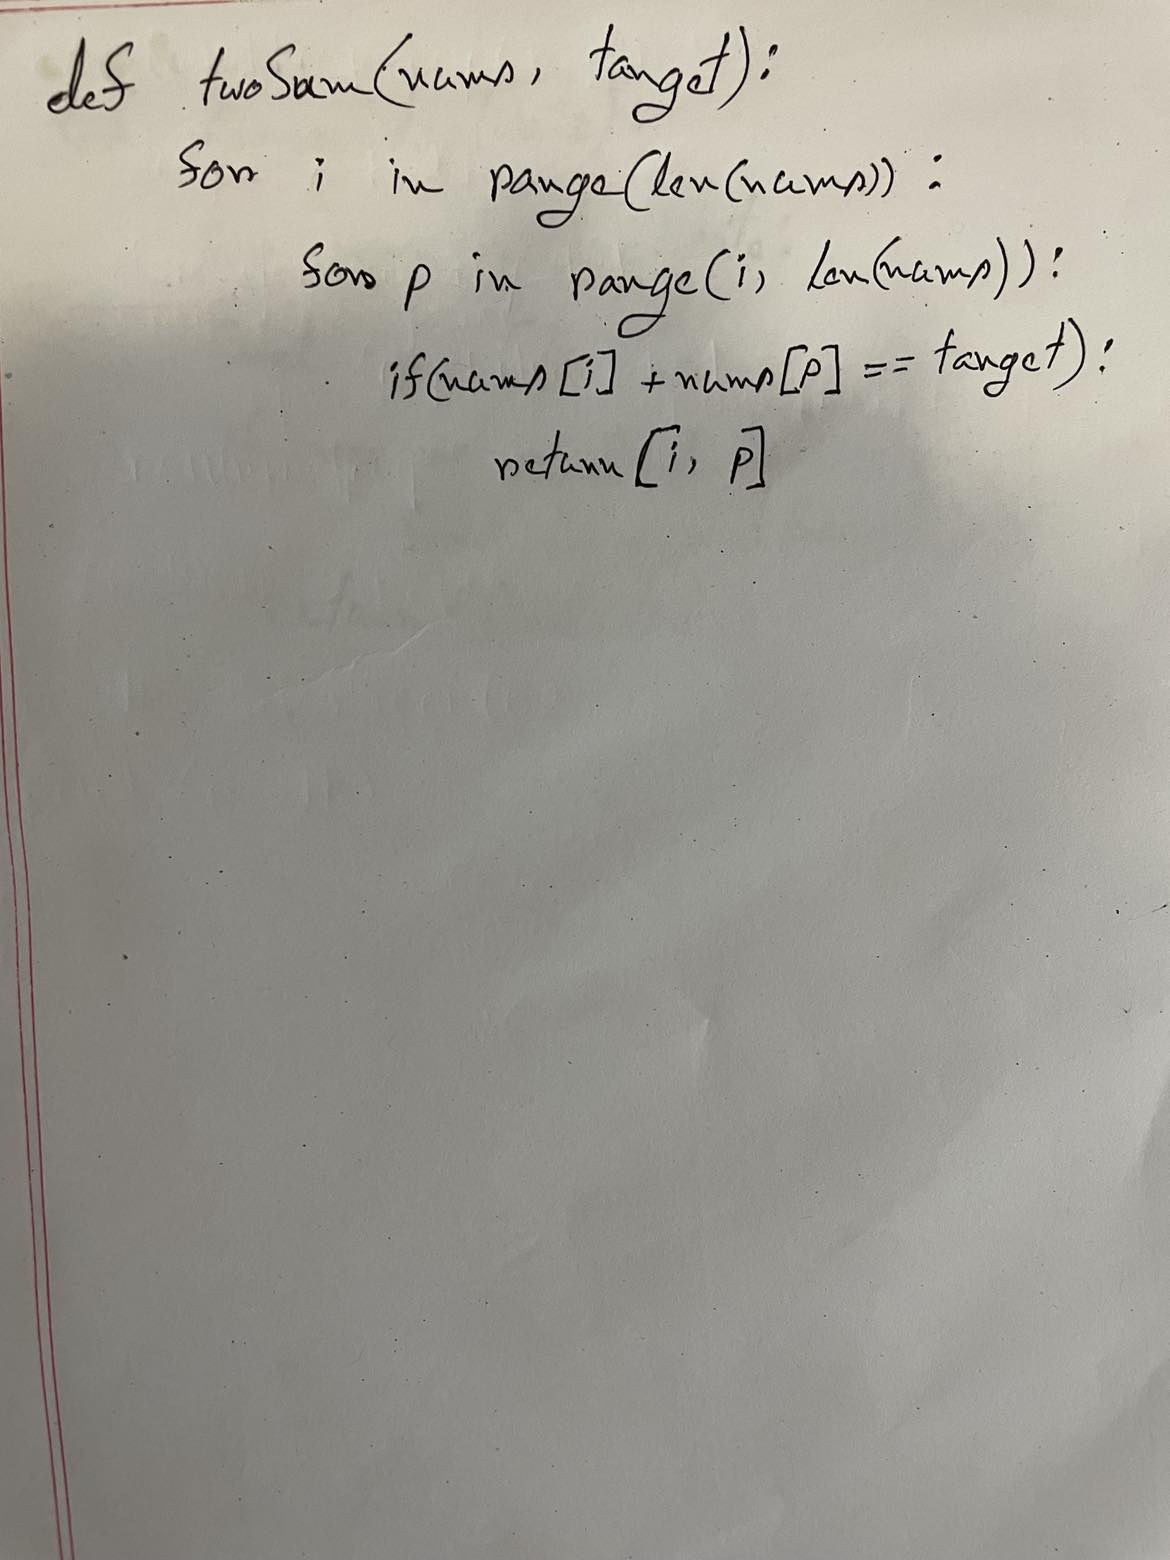 def twoSum(nums, target):
for i in range(len(nums)):
for p in range(i, len(nums)):
if(nums[i] + nums[p] == target):
return [i, p]